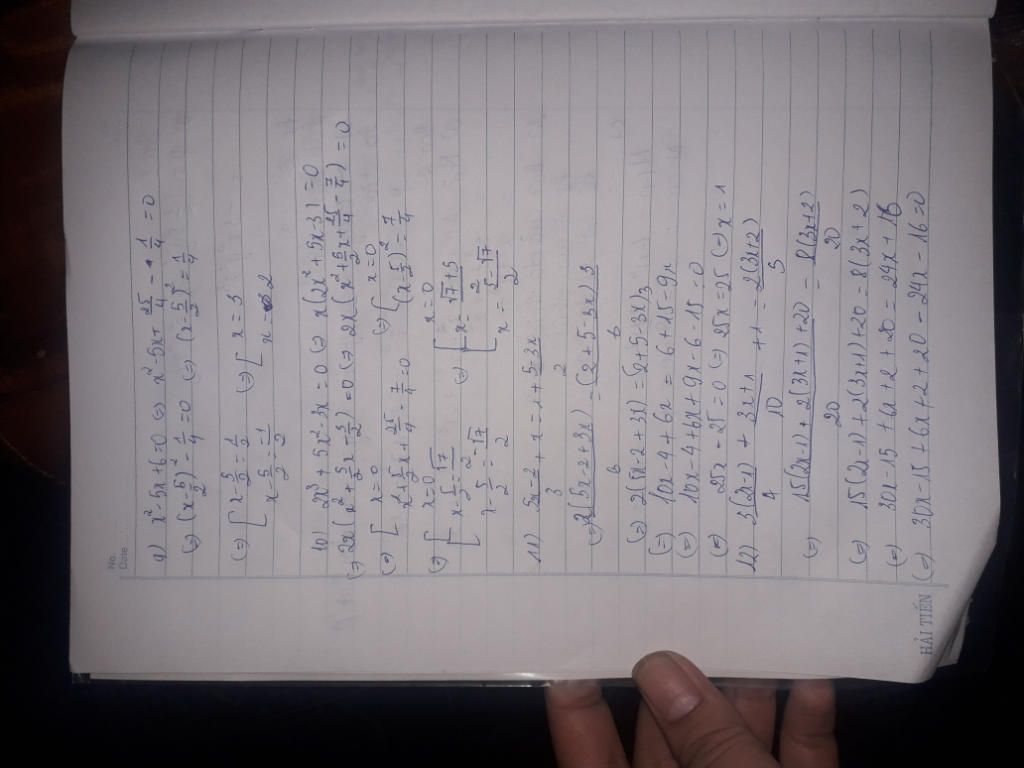 No.
Date
9) x² - 5x + 6 = 0 (=) x² - 5x + 25/4 - 1/4 = 0
(=) (x - 5/2)² - 1/4 = 0 (=) (x - 5/2)² = 1/4
(=) [ x - 5/2 = 1/2 (=) [ x = 3
x - 5/2 = -1/2 x = 2
10) 2x³ + 5x² - 3x = 0 (=) x(2x² + 5x - 3) = 0
(=) 2x(x² + 5/2x - 3/2) = 0 (=) 2x(x² + 5/2x + 25/4 - 7/4) = 0
(=) [ x = 0 (=) [ x = 0
x² + 5/2x + 25/4 - 7/4 = 0 (x - 5/2)² = 7/4
(=) [ x = 0 (=) [ x = 0
x - 5/2 = √7/2 x = √7+5/2
x - 5/2 = -√7/2 x = 5-√7/2
11) 5x-2/3 + x = 1 + 5-3x/2
(=) 2(5x-2+3x)/6 = (2+5-3x)3/6
(=) 2(5x-2+3x) = (2+5-3x)3
(=) 10x - 4 + 6x = 6 + 15 - 9x
(=) 10x - 4 + 6x + 9x - 6 - 15 = 0
(=) 25x - 25 = 0 (=) 25x = 25 (=) x = 1
12) 3(2x-1)/4 + 3x+1/10 + 1 = 2(3x+2)/5
(=) 15(2x-1) + 2(3x+1) + 20/20 = 8(3x+2)/20
(=) 15(2x-1) + 2(3x+1) + 20 = 8(3x+2)
(=) 30x - 15 + 6x + 2 + 20 = 24x + 16
(=) 30x - 15 + 6x + 2 + 20 - 24x - 16 = 0
HẢI TIẾN